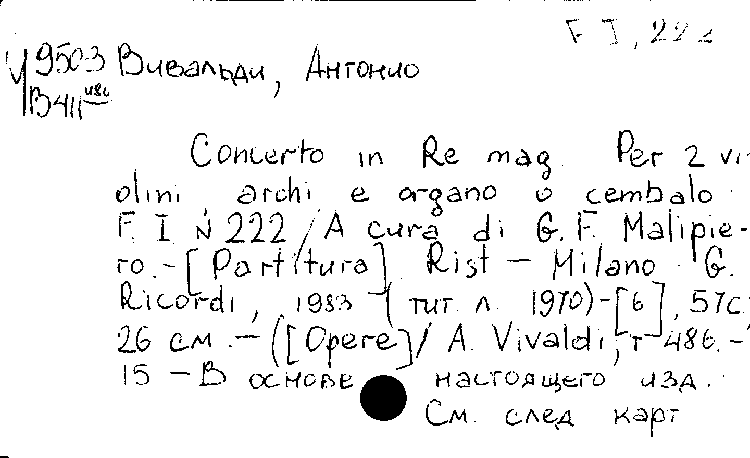 F I, 222
У 9503 Вивальди, Антонио
В411 486
Concerto in Re mag. Per 2 vi-
olini, archi e organo o cembalo.
F. I N 222 / A cura di G. F. Malipie-
ro. - [Partitura]. Rist - Milano : G.
Ricordi, 1983 (тит. л. 1970) - [6], 57 с.
26 см. - ([Opere] / A. Vivaldi; т 486. -
15 - В основе настоящего изд.
См. след карт